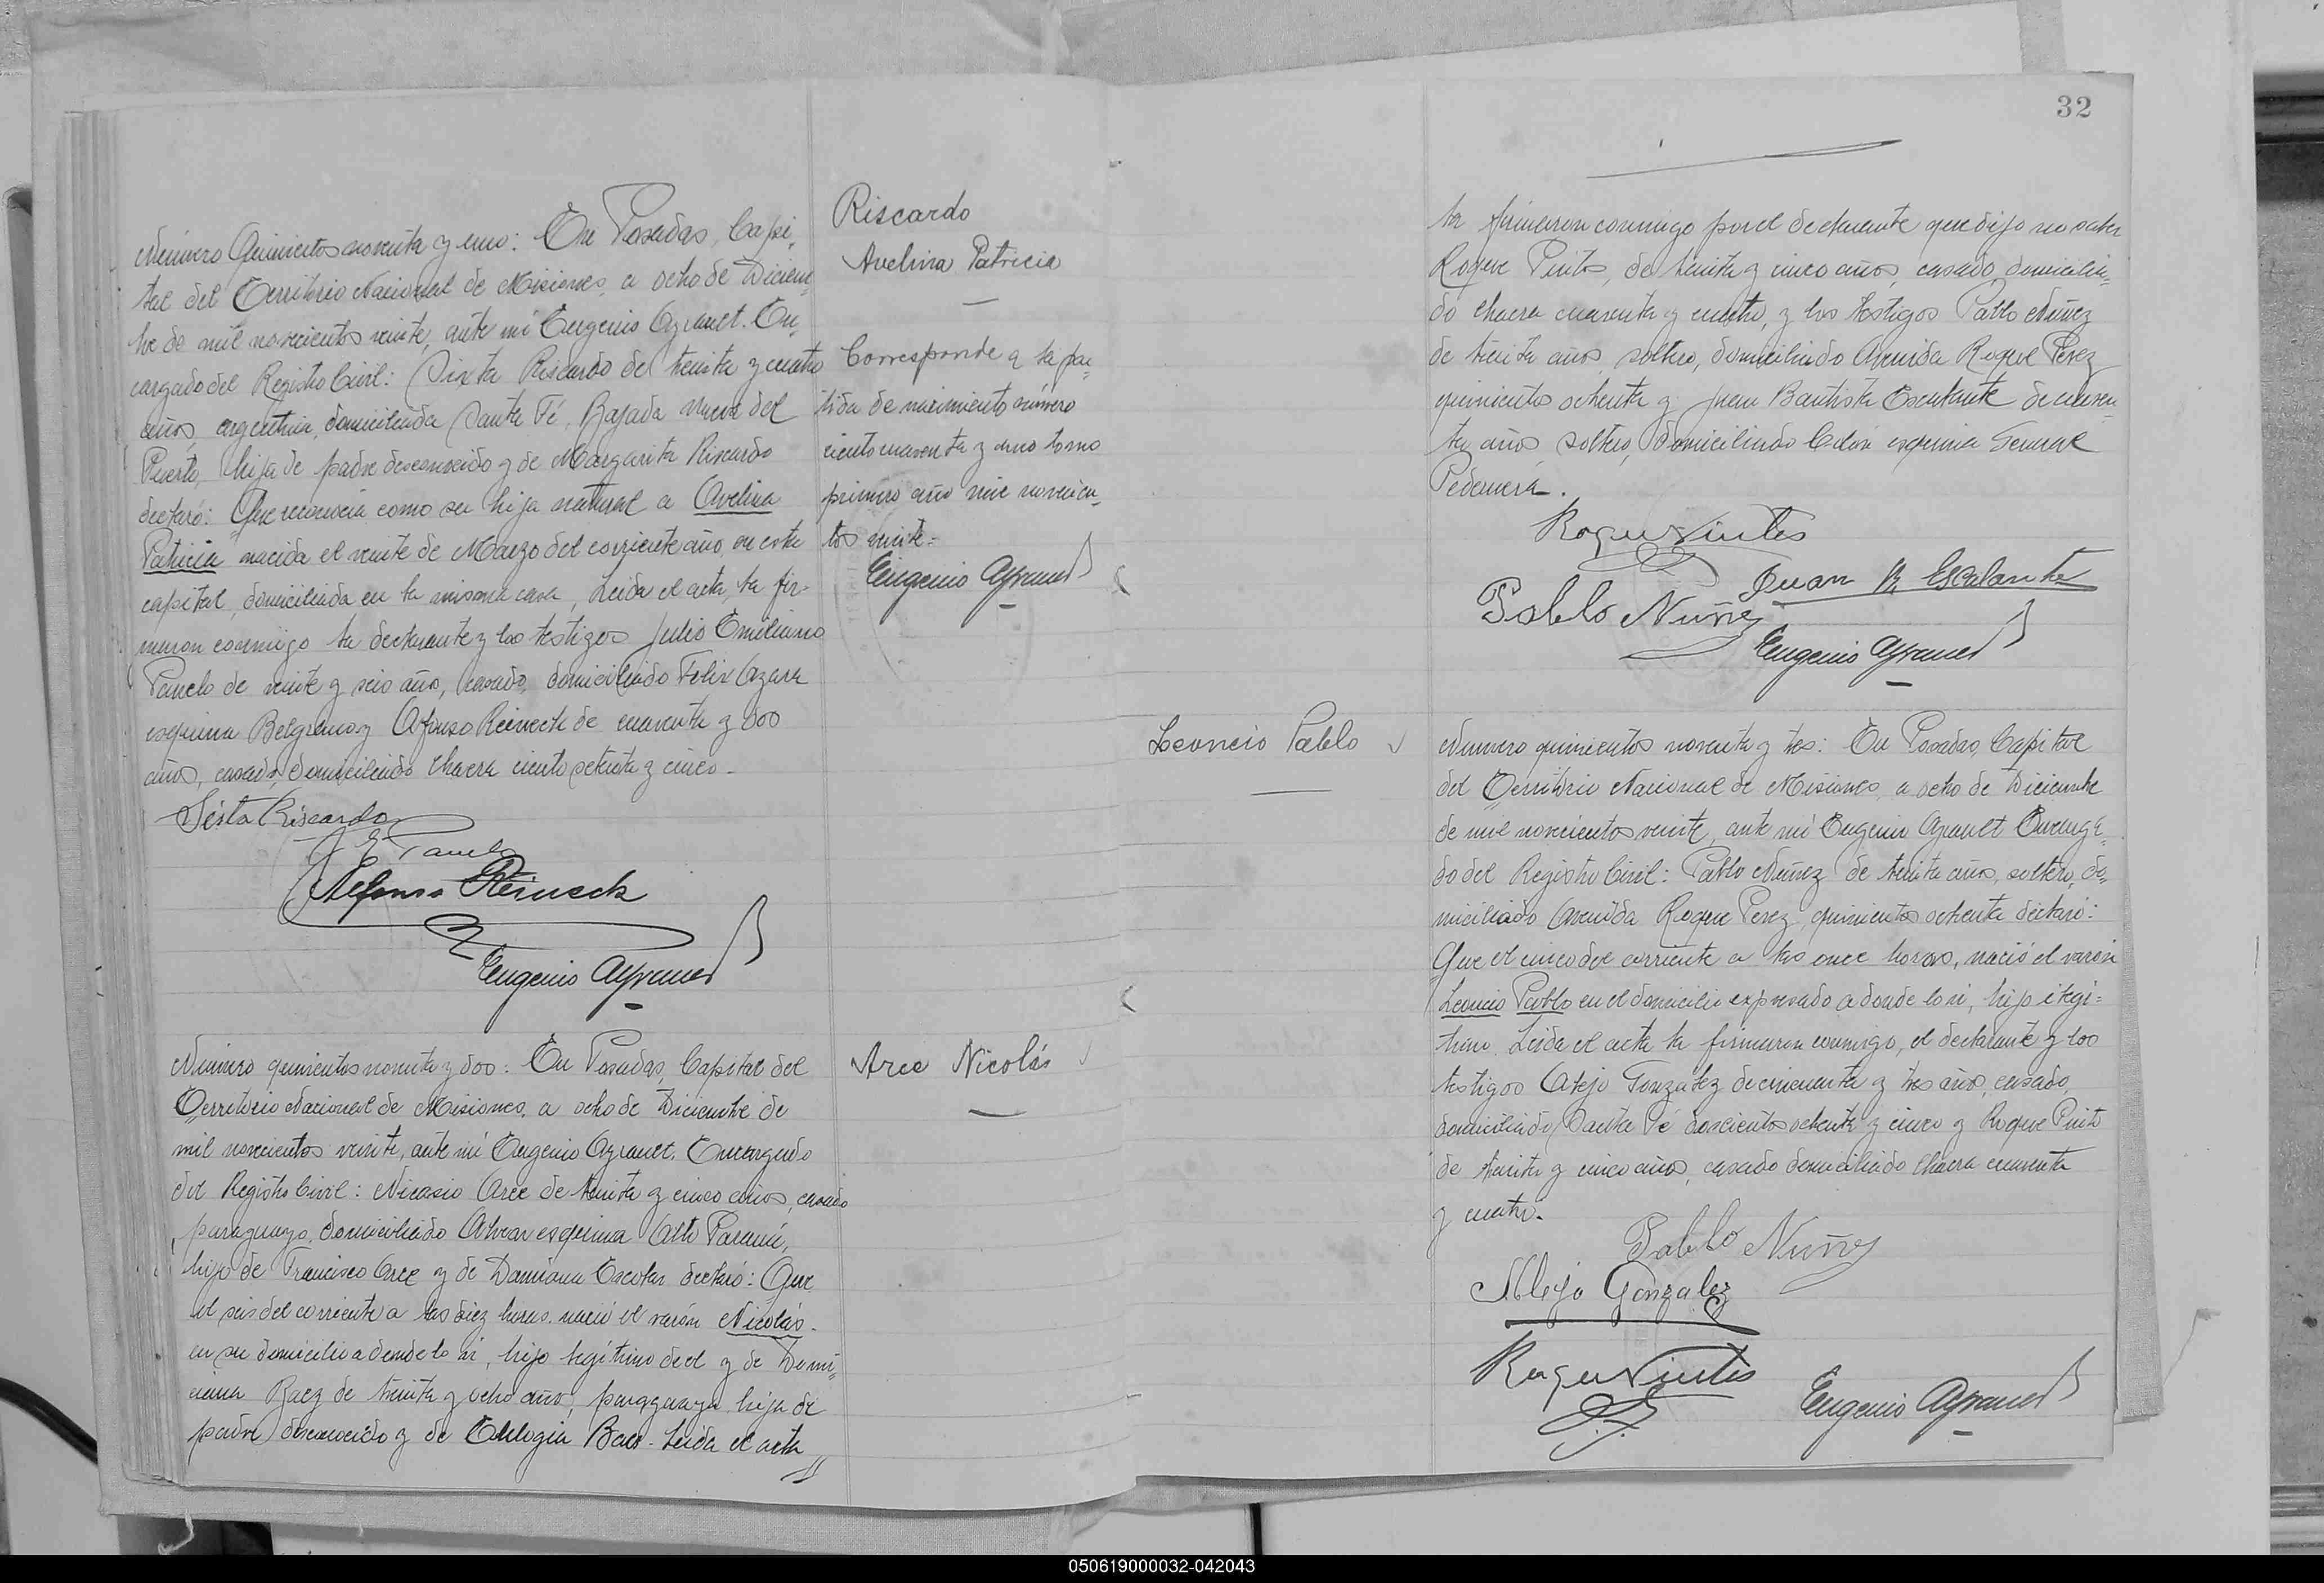 Número Quinientos noventa y uno: En Posadas, Capi,
tal del Territorio Nacional de Misiones, a ocho de Diciem,
bre de mil novecientos veinte, ante mí Eugenio Ayrault. En,
cargado del Registro Civil: Sixta Riscardo de treinta y cuatro
años, argentina, domiciliada Santa Fé, Bajada nueva del
Puerto, hija de padre desconocido y de Margarita Riscardo
declaró: Que reconocía como su hija natural a Avelina
Patricia nacida el veinte de Marzo del corriente año, en esta
capital, domiciliada en la misma casa, Leida el acta, la fir-
maron conmigo la declarante y los testigos Julio Emiliano
Panelo de veinte y seis año, casado, domiciliado Felix Azara
esquina Belgrano y Alfonso Reineck de cuarenta y dos
años, casado, domiciliado Chacra ciento setenta y cinco.
Sista Riscardo
J E Panelo
Alfonso Reineck
Eugenio Ayrault
Riscardo
Avelina Patricia
Corresponde a la par,
tida de nacimiento número
ciento cuarenta y uno tomo
primero año mil novecien,
tos veinte=
Eugenio Ayrault
Número quinientos noventa y dos: En Posadas, Capital del
Territorio Nacional de Misiones, a ocho de Diciembre de
mil novecientos veinte, ante mí Eugenio Ayrault. Encargado
del Registro Civil: Nicasio Arce de treinta y cinco años, casado
paraguayo, domiciliado Alvear esquina Alto Paraná,
hijo de Francisco Arce y de Damiana Escobar declaró: Que
el seis del corriente a las diez horas nació el varón Nicolás.
en su domicilio a donde lo ví, hijo legítimo de el y de
Baez de treinta y ocho años, paraguaya hija de
padre desconocido y de Eulogia Baez. Leida el acta
Arce Nicolás
32
la firmaron conmigo por el declarante que dijo no saber
Roque Pintos, de treinta y cinco años, casado, domicilia,
do chacra cuarenta y cuatro, y los testigos Pablo Núñez
de treinta años, soltero, domiciliado Avenida Roque Perez
quinientos ochenta y Juan Bautista Escalante de cuaren
ta años, soltero, domiciliado Colón esquina General
Pedernera.
Roque Pintos
Juan B. Escalante
Pablo Nuñez
Eugenio Ayrault
Leoncio Pablo
Número quinientos noventa y tres: En Posadas, Capital
del Territorio Nacional de Misiones, a ocho de Diciembre
de mil novecientos veinte, ante mí Eugenio Ayrault Encarga,
do del Registro Civil: Pablo Núñez de treinta años, soltero, do,
miciliado Avenida Roque Perez, quinientos ochenta declaró:
Que el cinco del corriente a las once horas, nació el varón
Leoncio Pablo en el domicilio expresado a donde lo ví, hijo ilegí=
timo. Leida el acta la firmaron conmigo, el declarante y los
testigos Alejo Gonzalez de cincuenta y tres años, casado
domiciliado Santa Fé doscientos ochenta y cinco y Roque Pinto
de treinta y cinco años, casado domiciliado chacra cuarenta
y cuatro.
Pablo Nuñez
Alejo Gonzalez
Roque Pintos
Eugenio Ayrault
050619000032-042043